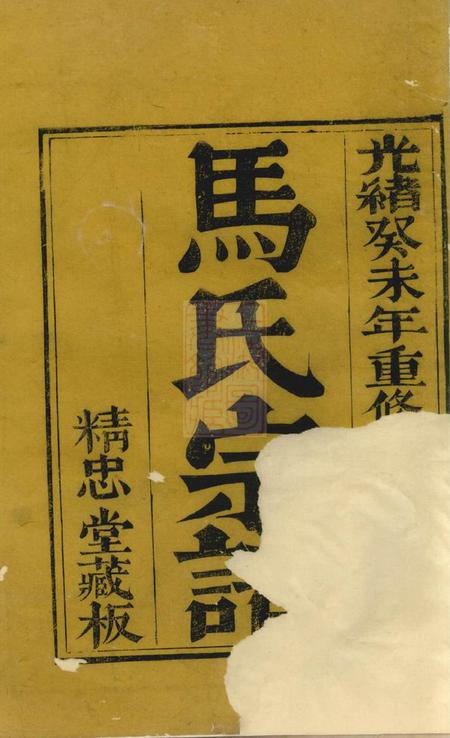 光緒癸未年重修
馬氏宗譜
精忠堂藏板